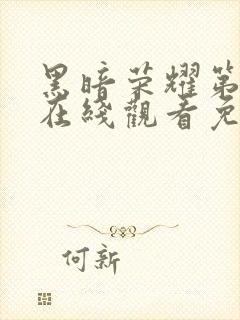 黑暗荣耀第
在綫觀看免
何新